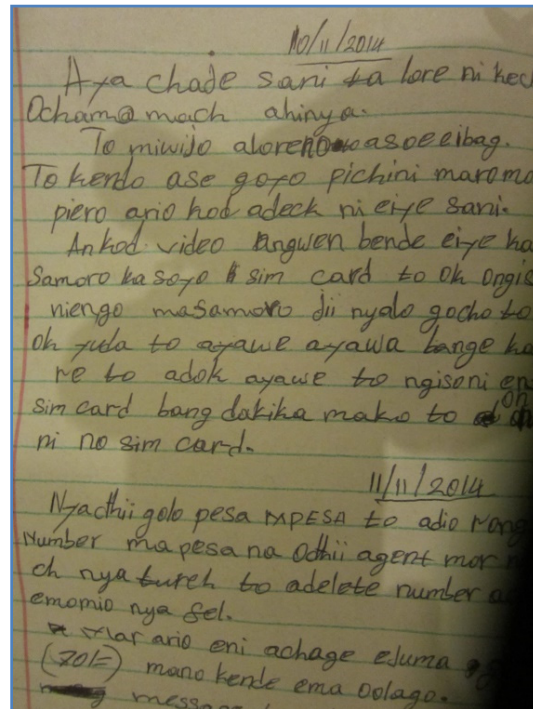 10/11/2014
Aya chade sani ta lore ni kec
Ochama mach ahinya.
To miwijo aloreno asoe eibag.
To kendo ase goyo pichini maromo
piero ario kod adeck ni eiye sani.
Ankod video angwen bende eiye ka
Samoro ka soyo sim card to ok ongis
niengo masamoro dii nyalo gocho to
ok yuda to ayawe ayawa bange ka
re to adok ayawe to ngisoni en
sim card bang dakika mako to on
ni no sim card.
11/11/2014
Nyacthii golo pesa MPESA to adio rong
Number ma pesa na Odhii agent mor
ch nya tureh to adelete number a
emomio nya fel.
Tar ario eni achage ejuma
(70/=) mano kende ema oolago.
message